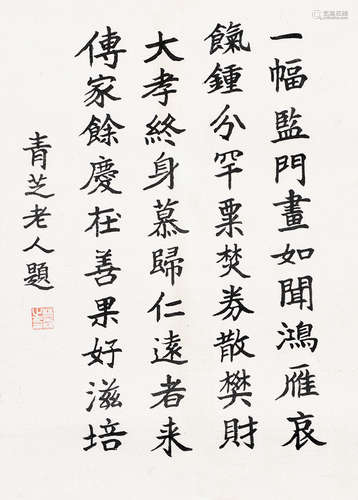 一幅監門畫如聞鴻雁哀
餼鍾分罕粟焚券散樊財
大孝終身慕歸仁遠者来
傳家餘慶在善果好滋培
青芝老人題